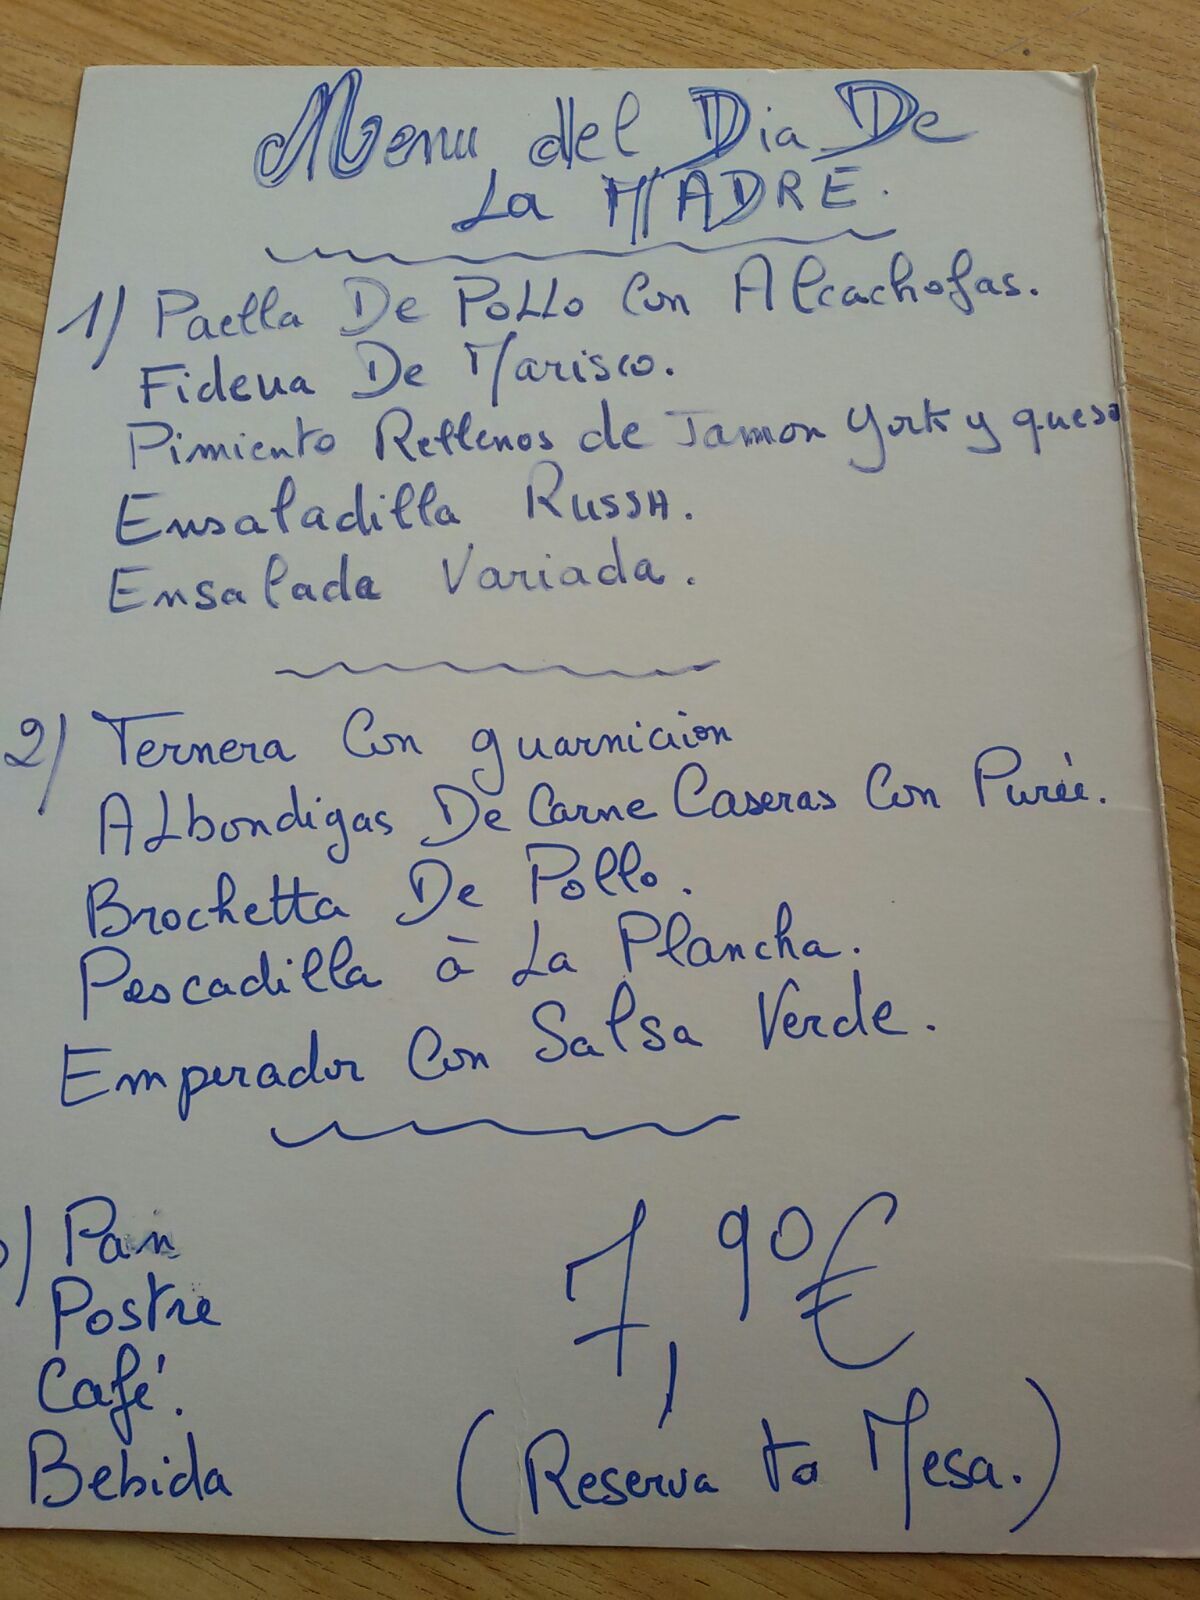 Menu del Dia De
La MADRE.
1) Paella De Pollo Con Alcachofas.
Fideua De Marisco.
Pimiento Rellenos de Jamon York y queso
Ensaladilla Russa.
Ensalada Variada.
2) Ternera Con guarnicion
Albondigas De Carne Caseras Con Purée.
Brochetta De Pollo.
Pescadilla à La Plancha.
Emperador Con Salsa Verde.
) Pan
Postre
Café.
Bebida
7,90€
(Reserva tu Mesa.)